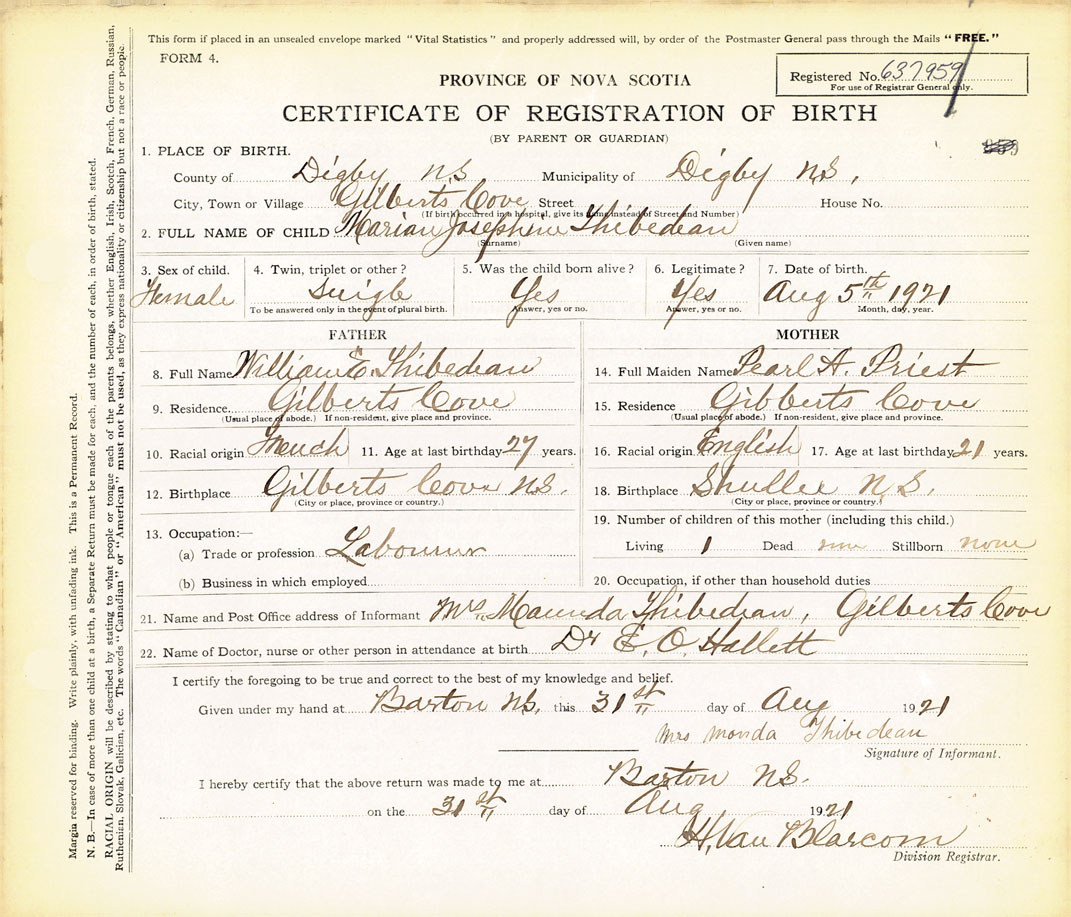 This form if placed in an unsealed envelope marked "Vital Statistics" and properly addressed will, by order of the Postmaster General pass through the Mails "FREE."
FORM 4.
Registered No. 637959
For use of Registrar General only.
PROVINCE OF NOVA SCOTIA
CERTIFICATE OF REGISTRATION OF BIRTH
(BY PARENT OR GUARDIAN)
1. PLACE OF BIRTH.
County of Digby N.S. Municipality of Digby N.S.,
City, Town or Village Gilberts Cove Street House No.
(If birth occurred in a hospital, give its name instead of Street and Number)
2. FULL NAME OF CHILD Marian Josephine Thibedeau
(Surname) (Given name)
3. Sex of child. 4. Twin, triplet or other? 5. Was the child born alive? 6. Legitimate? 7. Date of birth.
Female Single Yes Yes Aug 5th 1921
To be answered only in the event of plural birth. Answer, yes or no. Answer, yes or no. Month, day, year.
FATHER MOTHER
8. Full Name William E. Thibedeau 14. Full Maiden Name Pearl A. Priest
9. Residence Gilberts Cove 15. Residence Gibberts Cove
(Usual place of abode.) If non-resident, give place and province. (Usual place of abode.) If non-resident, give place and province.
10. Racial origin French 11. Age at last birthday 27 years. 16. Racial origin English 17. Age at last birthday 21 years.
12. Birthplace Gilberts Cove N.S. 18. Birthplace Shullee N.S.
(City or place, province or country.) (City or place, province or country.)
13. Occupation:— 19. Number of children of this mother (including this child.)
(a) Trade or profession Labourer Living 1 Dead none Stillborn none
(b) Business in which employed 20. Occupation, if other than household duties
21. Name and Post Office address of Informant Mrs. Thibedeau, Gilberts Cove
22. Name of Doctor, nurse or other person in attendance at birth Dr E. O. Hallett
I certify the foregoing to be true and correct to the best of my knowledge and belief.
Given under my hand at Barton N.S. this 31st day of Aug 1921
Mrs Monda Thibedeau
Signature of Informant.
I hereby certify that the above return was made to me at Barton N.S.
on the 31st day of Aug 1921
H. Van Blarcom
Division Registrar.
Margin reserved for binding. Write plainly, with unfading ink. This is a Permanent Record.
N. B.—In case of more than one child at a birth, a Separate Return must be made for each, and the number of each, in order of birth, stated.
RACIAL ORIGIN will be described by stating to what people or tongue each of the parents belongs, whether English, Irish, Scotch, French, German, Russian,
Ruthenian, Slovak, Galician, etc. The words "Canadian" or "American" must not be used, as they express nationality or citizenship but not a race or people.